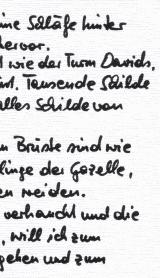 eine Schläfe hinter
hervor.
wie der Turm Davids,
Tausende Schilde
alles Schilde von
Brüste sind wie
der Gazelle,
weiden.
verhaucht und die
, will ich zum
gehen und zum